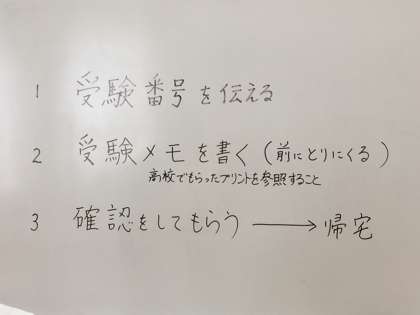 1 受験番号を伝える
2 受験メモを書く(前にとりにくる)
高校でもらったプリントを参照すること
3 確認をしてもらう → 帰宅